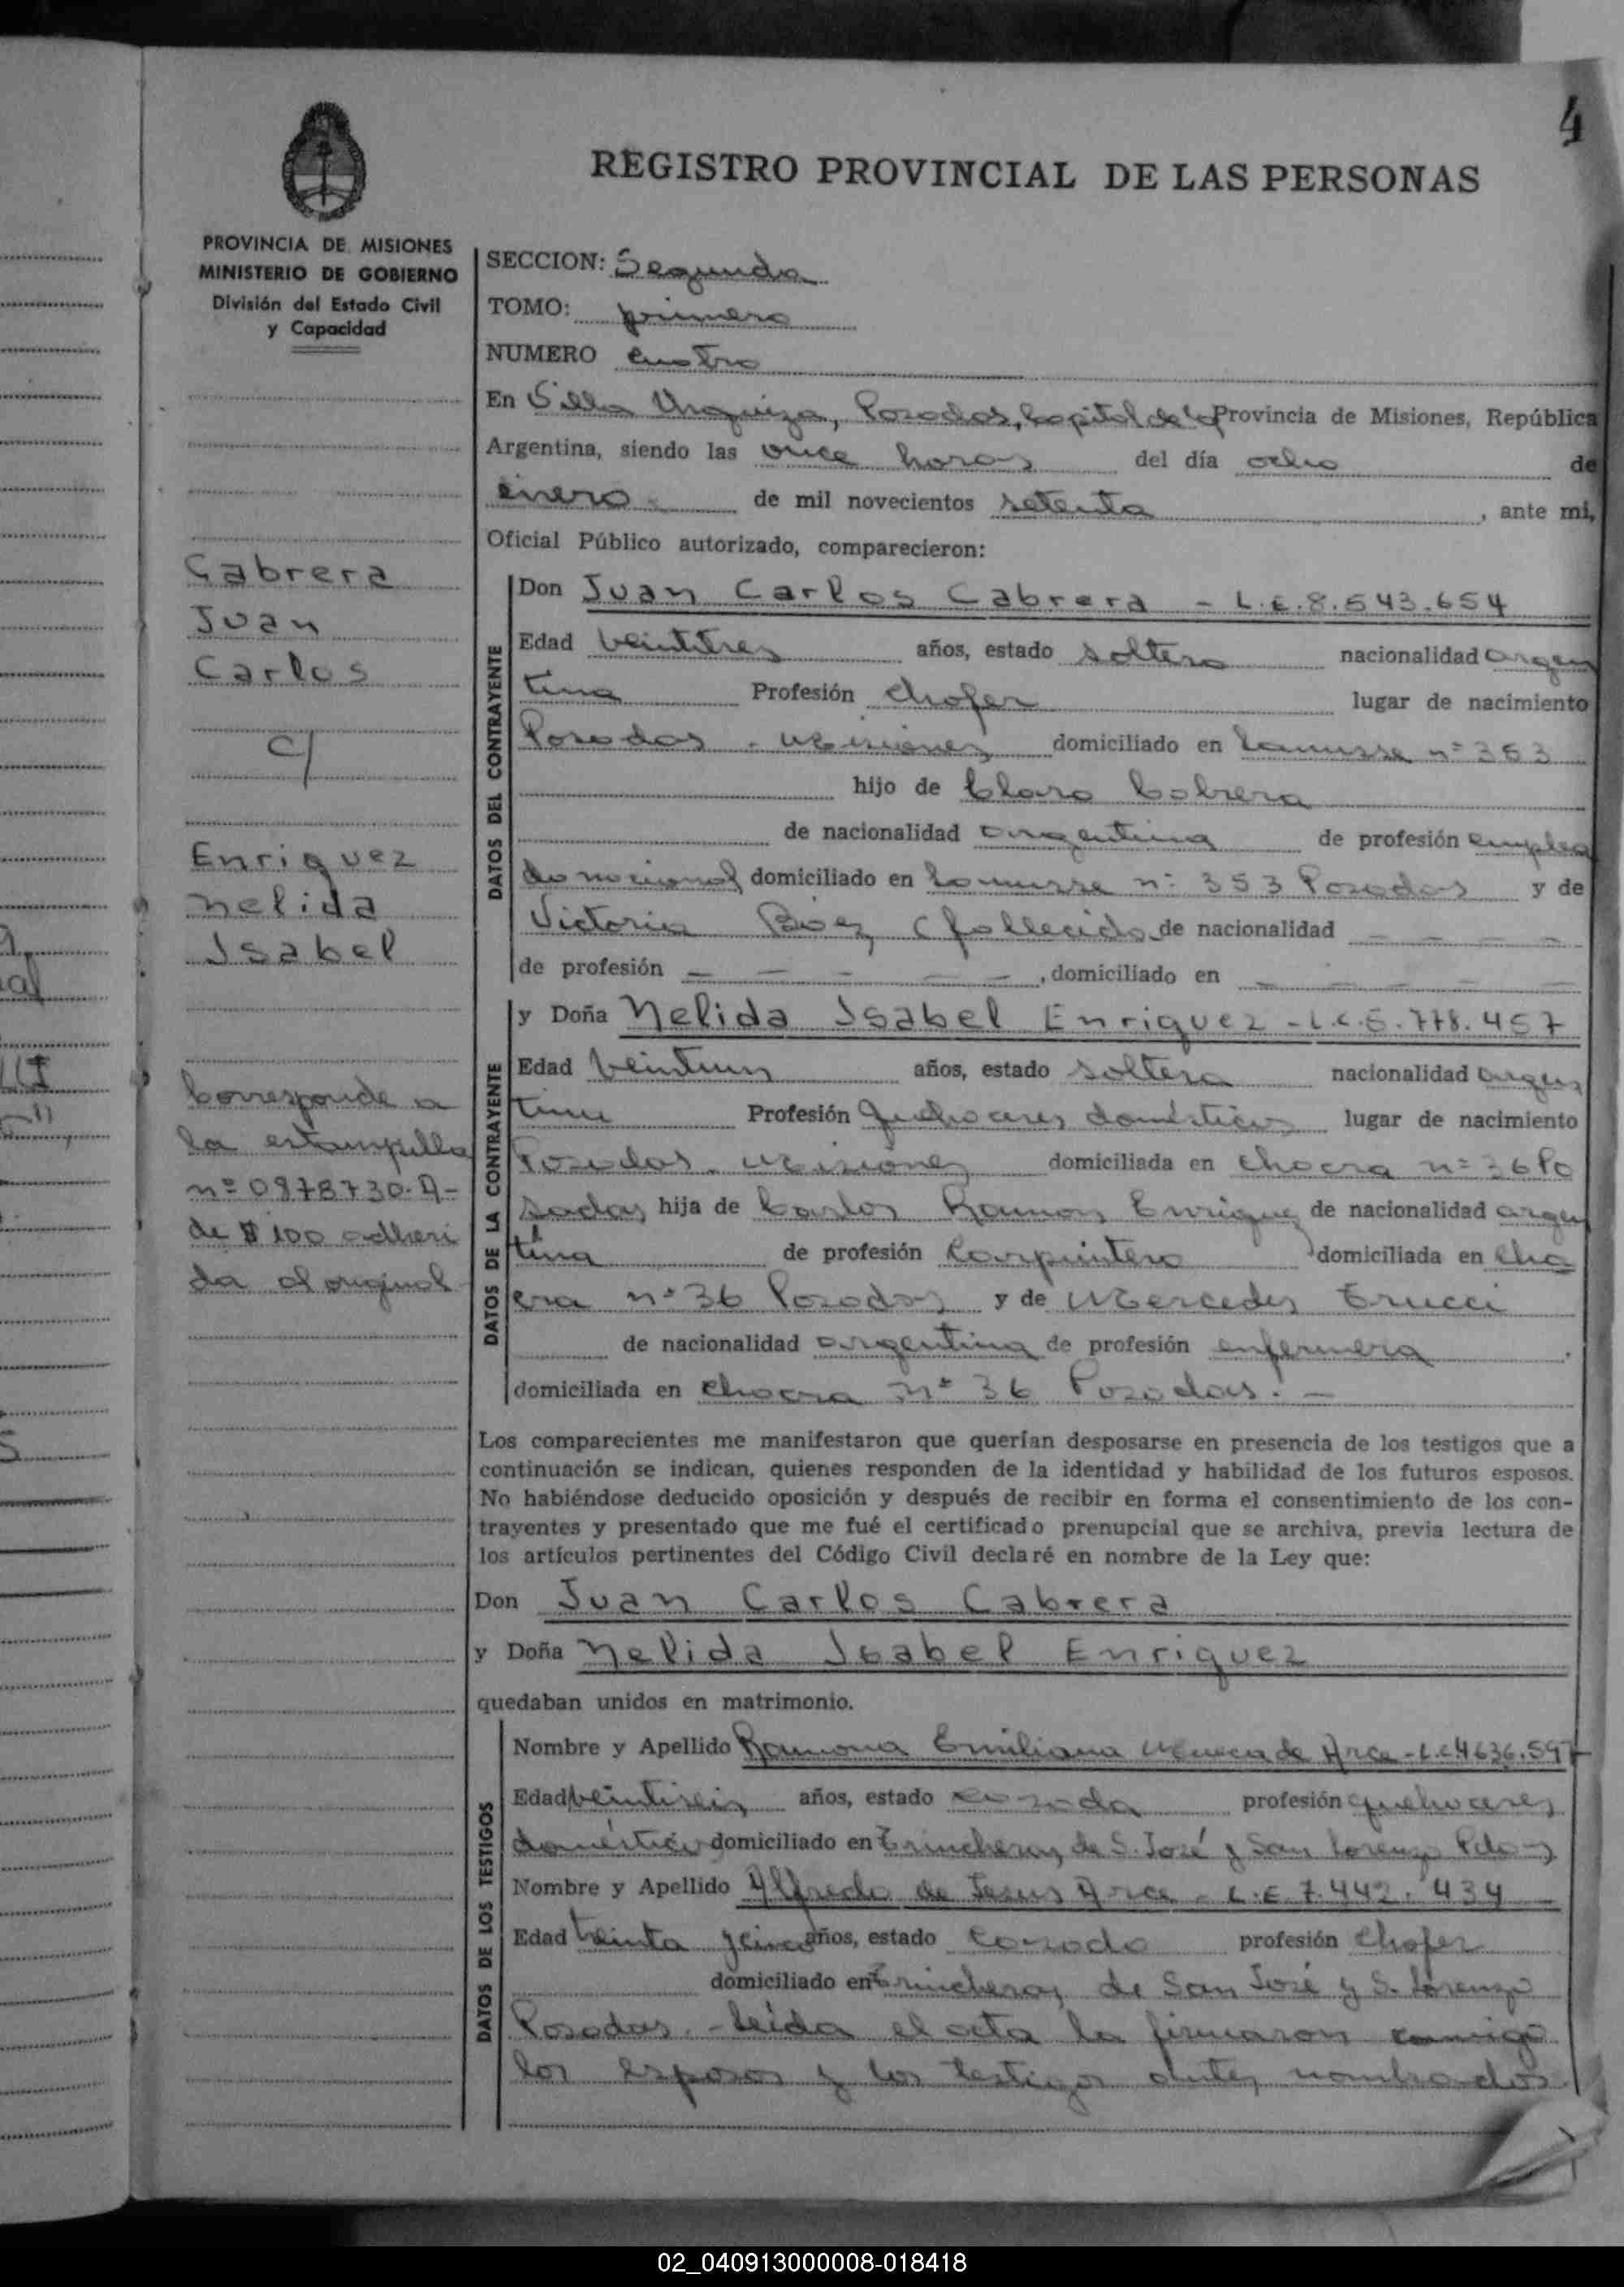 4
REGISTRO PROVINCIAL DE LAS PERSONAS
PROVINCIA DE MISIONES
MINISTERIO DE GOBIERNO
División del Estado Civil
y Capacidad
Cabrera
Juan
Carlos
c/
Enriquez
Nelida
Isabel
Corresponde a
la estampilla
nº 0978730-A-
de $ 100 adheri
da al original
SECCION: Segunda
TOMO: primero
NUMERO cuatro
En Villa Urquiza, Posadas, Capital de la Provincia de Misiones, República
Argentina, siendo las once horas del día ocho de
enero de mil novecientos setenta, ante mi,
Oficial Público autorizado, comparecieron:
DATOS DEL CONTRAYENTE
Don Juan Carlos Cabrera - L.E. 8.543.654
Edad veintitres años, estado soltero nacionalidad argen
tina Profesión chofer lugar de nacimiento
Posadas - Misiones domiciliado en Lanusse nº 353
hijo de Claro Cabrera
de nacionalidad argentina de profesión emplea
do nacional domiciliado en Lanusse nº 353 Posadas y de
Victoria Báez (fallecida de nacionalidad - - - -
de profesión - - - - -, domiciliado en - - - - -
DATOS DE LA CONTRAYENTE
y Doña Nelida Isabel Enriquez - L.C. 5.778.457
Edad veintiun años, estado soltera nacionalidad argen
tina Profesión Quehaceres domésticos lugar de nacimiento
Posadas - Misiones domiciliada en chacra nº 36 Po
sadas hija de Carlos Ramon Enriquez de nacionalidad argen
tina de profesión Carpintero domiciliada en cha
cra nº 36 Posadas y de Mercedes Trucci
de nacionalidad argentina de profesión enfermera.
domiciliada en chacra Nº 36 Posadas. -
Los comparecientes me manifestaron que querían desposarse en presencia de los testigos que a
continuación se indican, quienes responden de la identidad y habilidad de los futuros esposos.
No habiéndose deducido oposición y después de recibir en forma el consentimiento de los con-
trayentes y presentado que me fué el certificado prenupcial que se archiva, previa lectura de
los artículos pertinentes del Código Civil declaré en nombre de la Ley que:
Don Juan Carlos Cabrera
y Doña Nelida Isabel Enriquez
quedaban unidos en matrimonio.
DATOS DE LOS TESTIGOS
Nombre y Apellido Ramona Emiliana de Arce - L.C 4636.597
Edad veintiseis años, estado casada profesión quehaceres
domésticos domiciliado en Trincheras de S. José y San Lorenzo Pdas
Nombre y Apellido Alfredo de Jesus Arce - L.E 7.442.434
Edad treinta y cinco años, estado casado profesión chofer
domiciliado en Trincheras de San José y S. Lorenzo
Posadas. - Leída el acta la firmaron conmigo
los esposos y los testigos antes nombrados
02_040913000008-018418